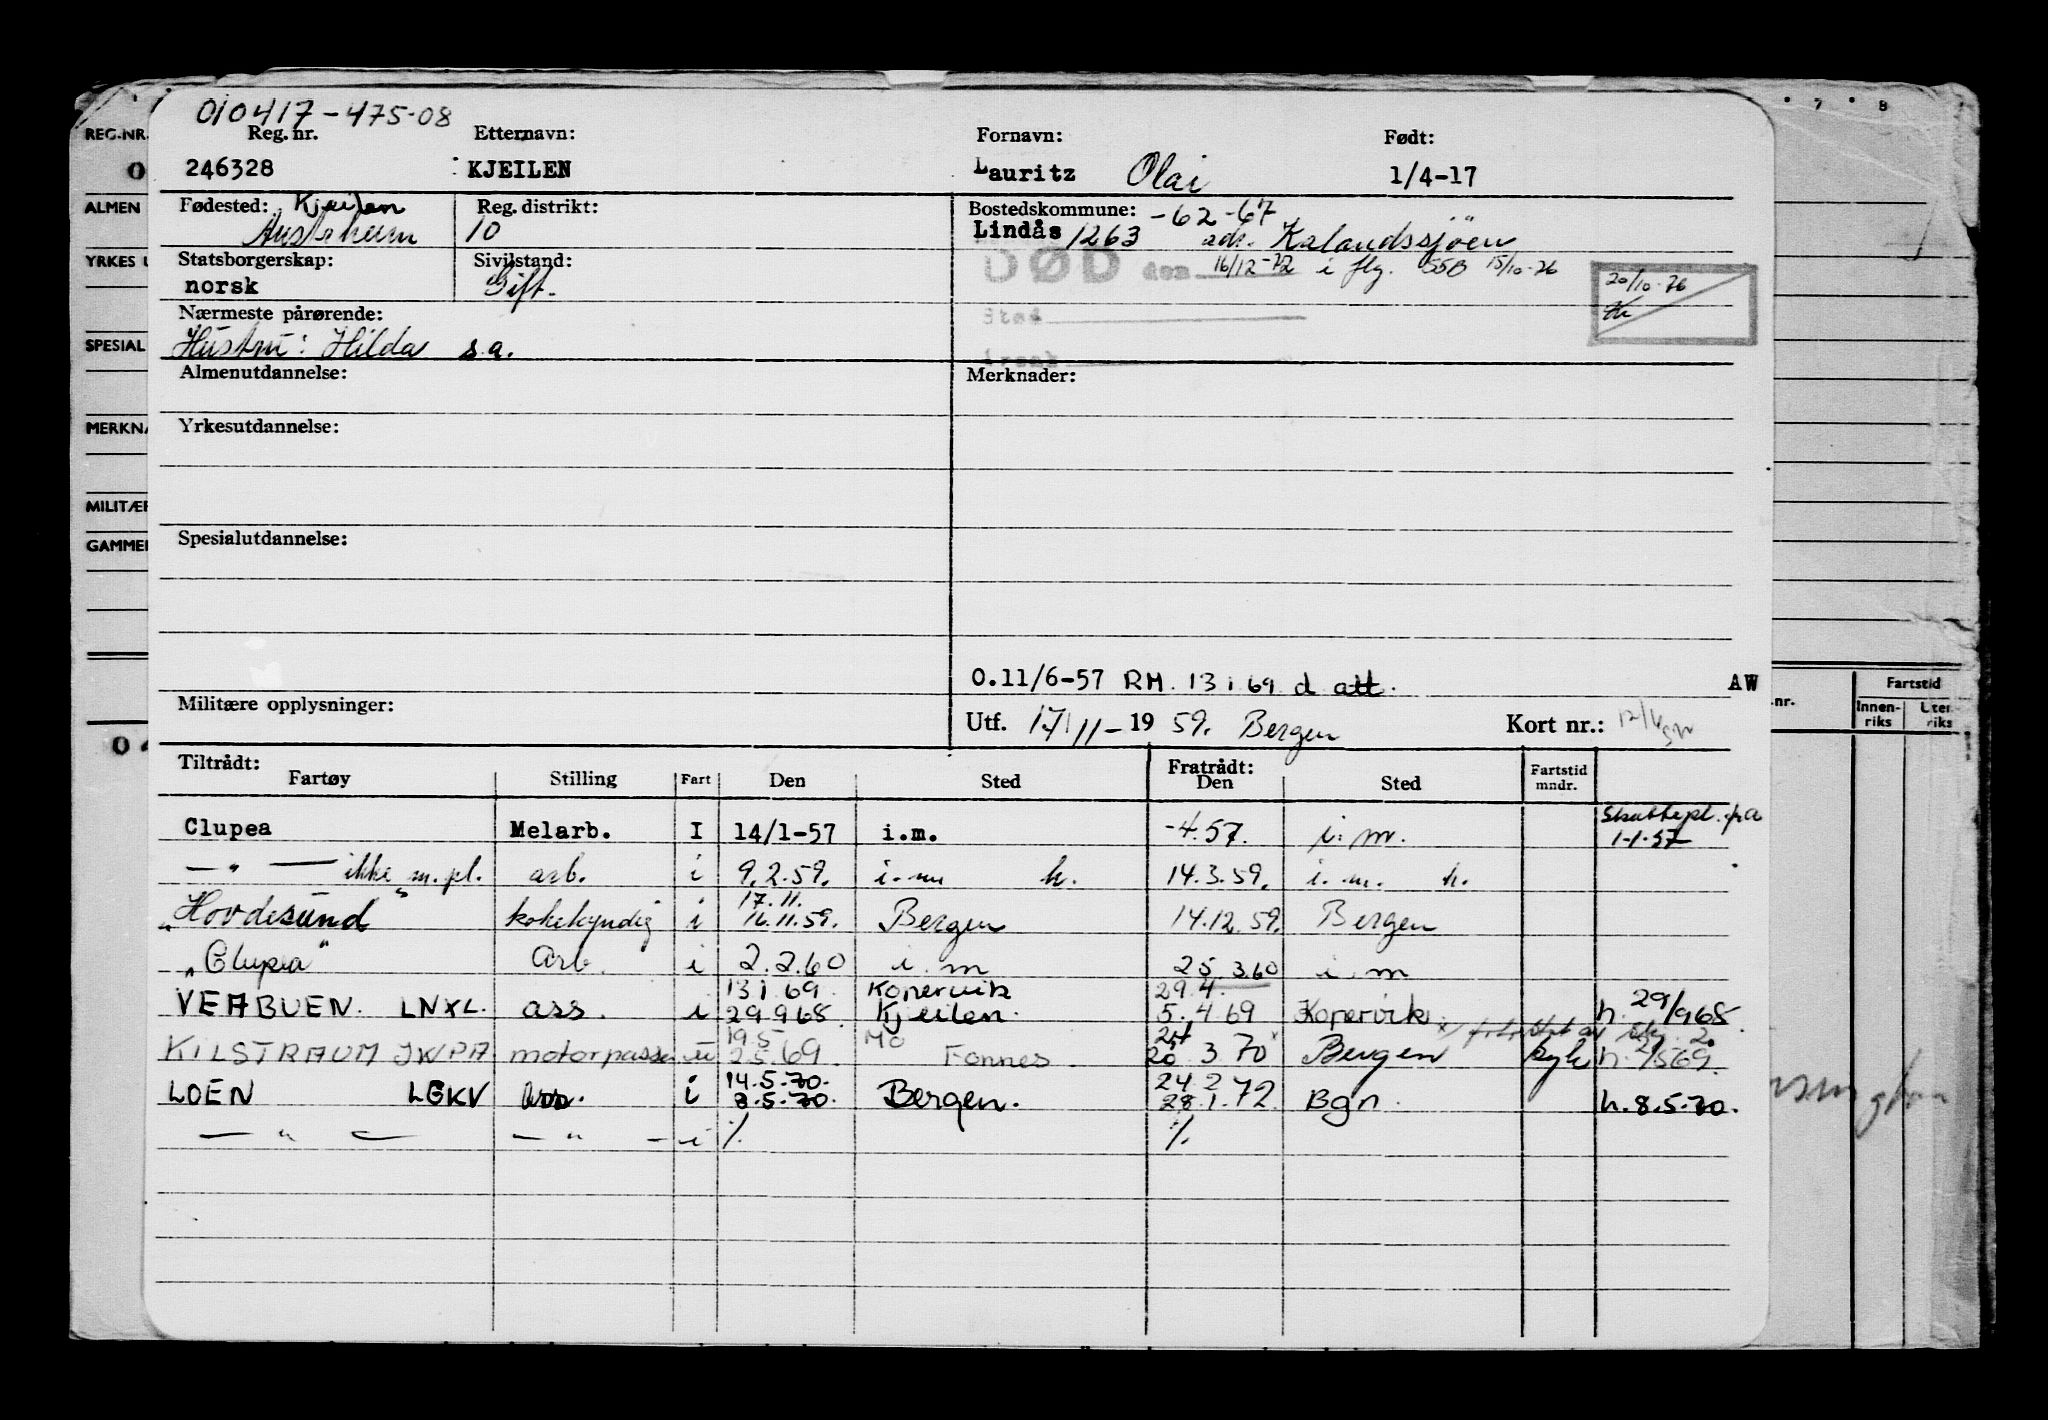 010417-475-08
REG.NR. Reg. nr. Etternavn: Fornavn: Født: 7 8
0 246328 KJEILEN Lauritz Olai 1/4-17
ALMEN Fødested: Kjeilen Reg. distrikt: Bostedskommune: -62-67
Austrheim 10 Lindås 1263 adr. Kalandssjöen
YRKES Statsborgerskap: Sivilstand: DØD den 16/12-72 i flg. SSB 15/10-76
norsk Gift. 20/10-76
Nærmeste pårørende: Sted
SPESIAL Hustru: Hilda s.a. Årsak
Almenutdannelse: Merknader:
MERKNA Yrkesutdannelse:
MILITÆR
GAMMEL Spesialutdannelse:
O.11/6-57 RM. 13 1 69 d att. AW
Militære opplysninger: Utf. 17/11-1959. Bergen Kort nr.: nr. Fartstid
Innen-riks Uten-riks
0 Tiltrådt: Fratrådt:
Fartøy Stilling Fart Den Sted Den Sted Fartstid mndr.
Clupea Melarb. I 14/1-57 i.m. -4.57. i.m. Skattepl. fra 1-1-57
— " — ikke m.pl. arb. i 9.2.59. i.m h. 14.3.59. i.m. h.
17.11.
"Hovdesund" kokekyndig i 16.11.59. Bergen 14.12.59. Bergen
"Clupea" Arb. i 2.2.60 i.m 25.3.60 i.m
13 1 69 Kopervik 29.4.
VEABUEN. LNXL. ass. i 29.9 68. Kjeilen. 5.4 69 Kopervik h. 29/9 68.
19 5 Mo 24
KILSTRAUM JWPA motorpasser u 2.5.69 Fonnes 20.3.70 x Bergen h. 2/5 69.
14.5.70. 24.2
LOEN LGKV ass. i 8.5.70. Bergen. 28.1.72. Bgn. h.8.5.70.
— " — — " — i % %